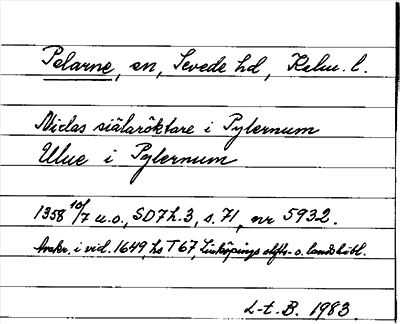 Pelarne, sn, Sevede hd, Kalm. l.
Niclas siälaröktare i Pylernum
Ulue i Pylernum
1358 10/7 u.o., SD7h.3, s.71, nr 5932.
Avskr. i vid. 1649, hs T67, Linköpings stifts- o. landsbibl.
L-t.B. 1983.